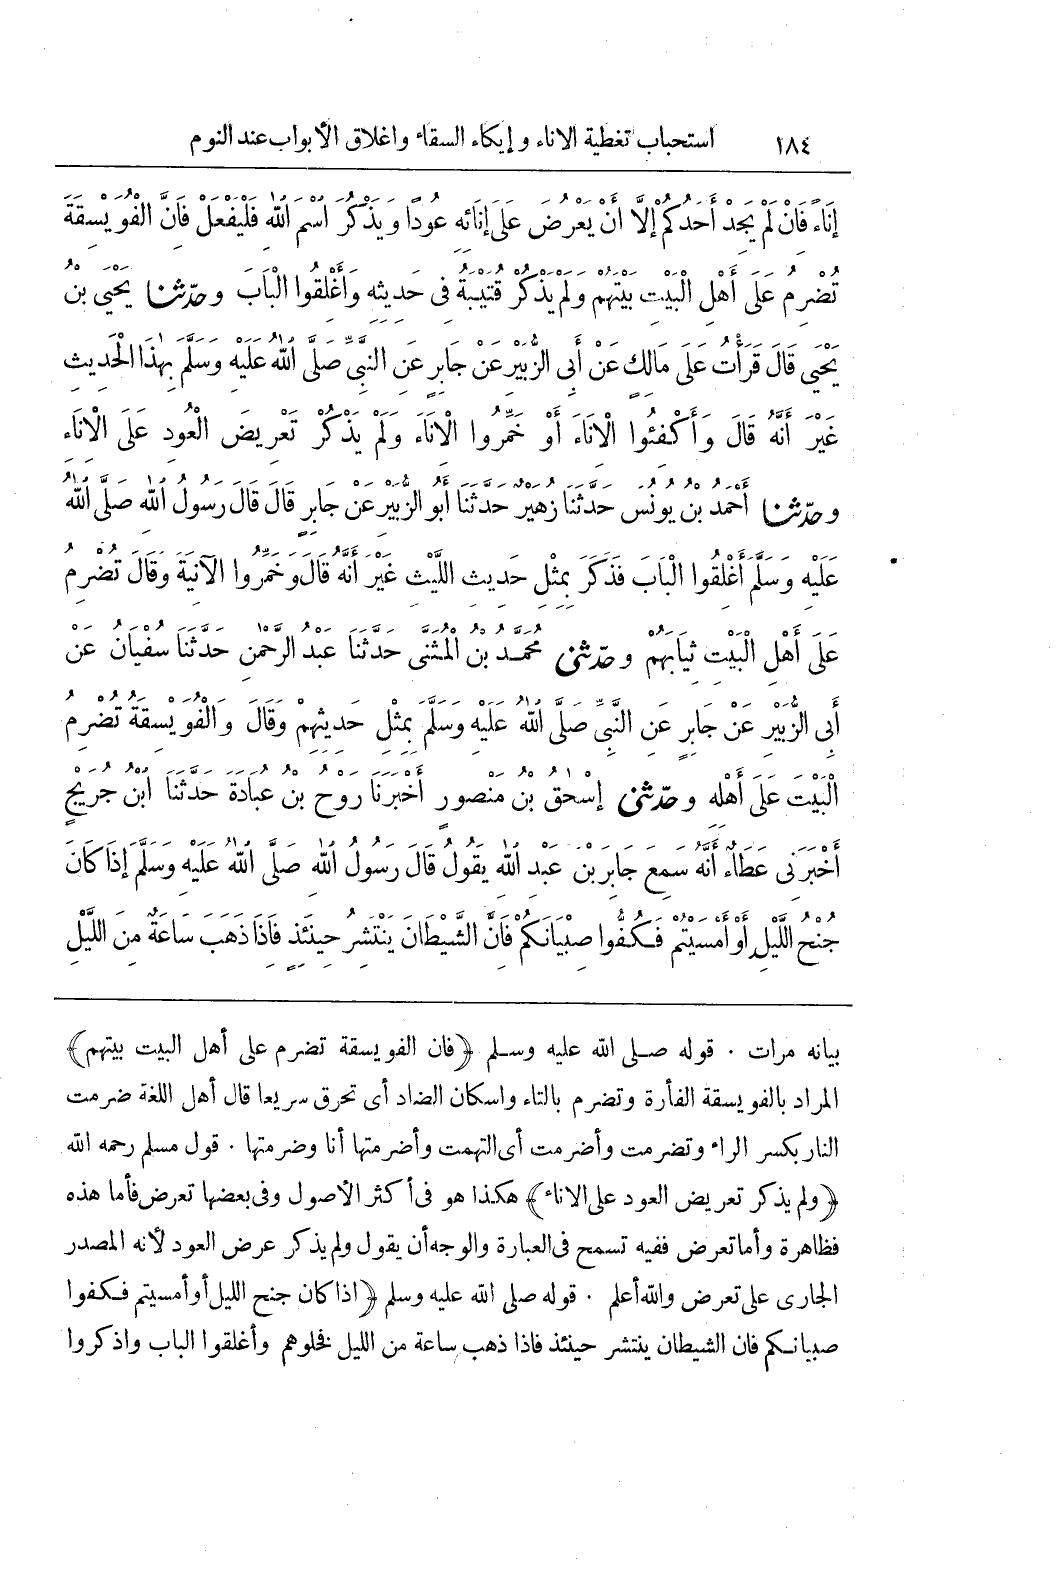 ١٨٤ استحباب تغطية الاناء وإيكاء السقاء واغلاق الأبواب عند النوم
إِنَاءً فَانْ لَمْ يَجِدْ أَحَدُكُمْ إِلَّا أَنْ يَعْرُضَ عَلَى إِنَائِهِ عُودًا وَيَذْكُرَ اسْمَ اللهِ فَلْيَفْعَلْ فَانَّ الْفُوَيْسِقَةَ
تُضْرِمُ عَلَى أَهْلِ الْبَيْتِ بَيْتَهُمْ وَلَمْ يَذْكُرْ قُتَيْبَةُ فِى حَدِيثِهِ وَأَغْلِقُوا الْبَابَ وحَدَّثَنَا يَحْيَى بْنُ
يَحْيَى قَالَ قَرَأْتُ عَلَى مَالِكٍ عَنْ أَبِى الزُّبَيْرِ عَنْ جَابِرٍ عَنِ النَّبِىِّ صَلَّى اللهُ عَلَيْهِ وَسَلَّمَ بِهٰذَا الْحَدِيثِ
غَيْرَ أَنَّهُ قَالَ وَأَكْفِئُوا الْانَاءَ أَوْ خَمِّرُوا الْانَاءَ وَلَمْ يَذْكُرْ تَعْرِيضَ الْعُودِ عَلَى الْانَاءِ
وحَدَّثَنَا أَحْمَدُ بْنُ يُونُسَ حَدَّثَنَا زُهَيْرٌ حَدَّثَنَا أَبُو الزُّبَيْرِ عَنْ جَابِرٍ قَالَ قَالَ رَسُولُ اللهِ صَلَّى اللهُ
عَلَيْهِ وَسَلَّمَ أَغْلِقُوا الْبَابَ فَذَكَرَ بِمِثْلِ حَدِيثِ اللَّيْثِ غَيْرَ أَنَّهُ قَالَ وَخَمِّرُوا الْآنِيَةَ وَقَالَ تُضْرِمُ
عَلَى أَهْلِ الْبَيْتِ ثِيَابَهُمْ وحَدَّثَنِى مُحَمَّدُ بْنُ الْمُثَنَّى حَدَّثَنَا عَبْدُ الرَّحْمٰنِ حَدَّثَنَا سُفْيَانُ عَنْ
أَبِى الزُّبَيْرِ عَنْ جَابِرٍ عَنِ النَّبِىِّ صَلَّى اللهُ عَلَيْهِ وَسَلَّمَ بِمِثْلِ حَدِيثِهِمْ وَقَالَ وَالْفُوَيْسِقَةُ تُضْرِمُ
الْبَيْتَ عَلَى أَهْلِهِ وحَدَّثَنِى إِسْحٰقُ بْنُ مَنْصُورٍ أَخْبَرَنَا رَوْحُ بْنُ عُبَادَةَ حَدَّثَنَا ابْنُ جُرَيْجٍ
أَخْبَرَنِى عَطَاءٌ أَنَّهُ سَمِعَ جَابِرَ بْنَ عَبْدِ اللهِ يَقُولُ قَالَ رَسُولُ اللهِ صَلَّى اللهُ عَلَيْهِ وَسَلَّمَ إِذَا كَانَ
جُنْحُ اللَّيْلِ أَوْ أَمْسَيْتُمْ فَكُفُّوا صِبْيَانَكُمْ فَانَّ الشَّيْطَانَ يَنْتَشِرُ حِينَئِذٍ فَاذَا ذَهَبَ سَاعَةٌ مِنَ اللَّيْلِ
بيانه مرات . قوله صلى الله عليه وسلم ﴿فان الفويسقة تضرم على أهل البيت بيتهم﴾
المراد بالفويسقة الفأرة وتضرم بالتاء واسكان الضاد أى تحرق سريعا قال أهل اللغة ضرمت
النار بكسر الراء وتضرمت وأضرمت أى التهمت وأضرمتها أنا وضرمتها . قول مسلم رحمه الله
﴿ولم يذكر تعريض العود على الاناء﴾ هكذا هو فى أكثر الأصول وفى بعضها تعرض فأما هذه
فظاهرة وأما تعرض ففيه تسمح فى العبارة والوجه أن يقول ولم يذكر عرض العود لأنه المصدر
الجارى على تعرض والله أعلم . قوله صلى الله عليه وسلم ﴿اذا كان جنح الليل أو أمسيتم فكفوا
صبيانكم فان الشيطان ينتشر حينئذ فاذا ذهب ساعة من الليل فخلوهم وأغلقوا الباب واذكروا